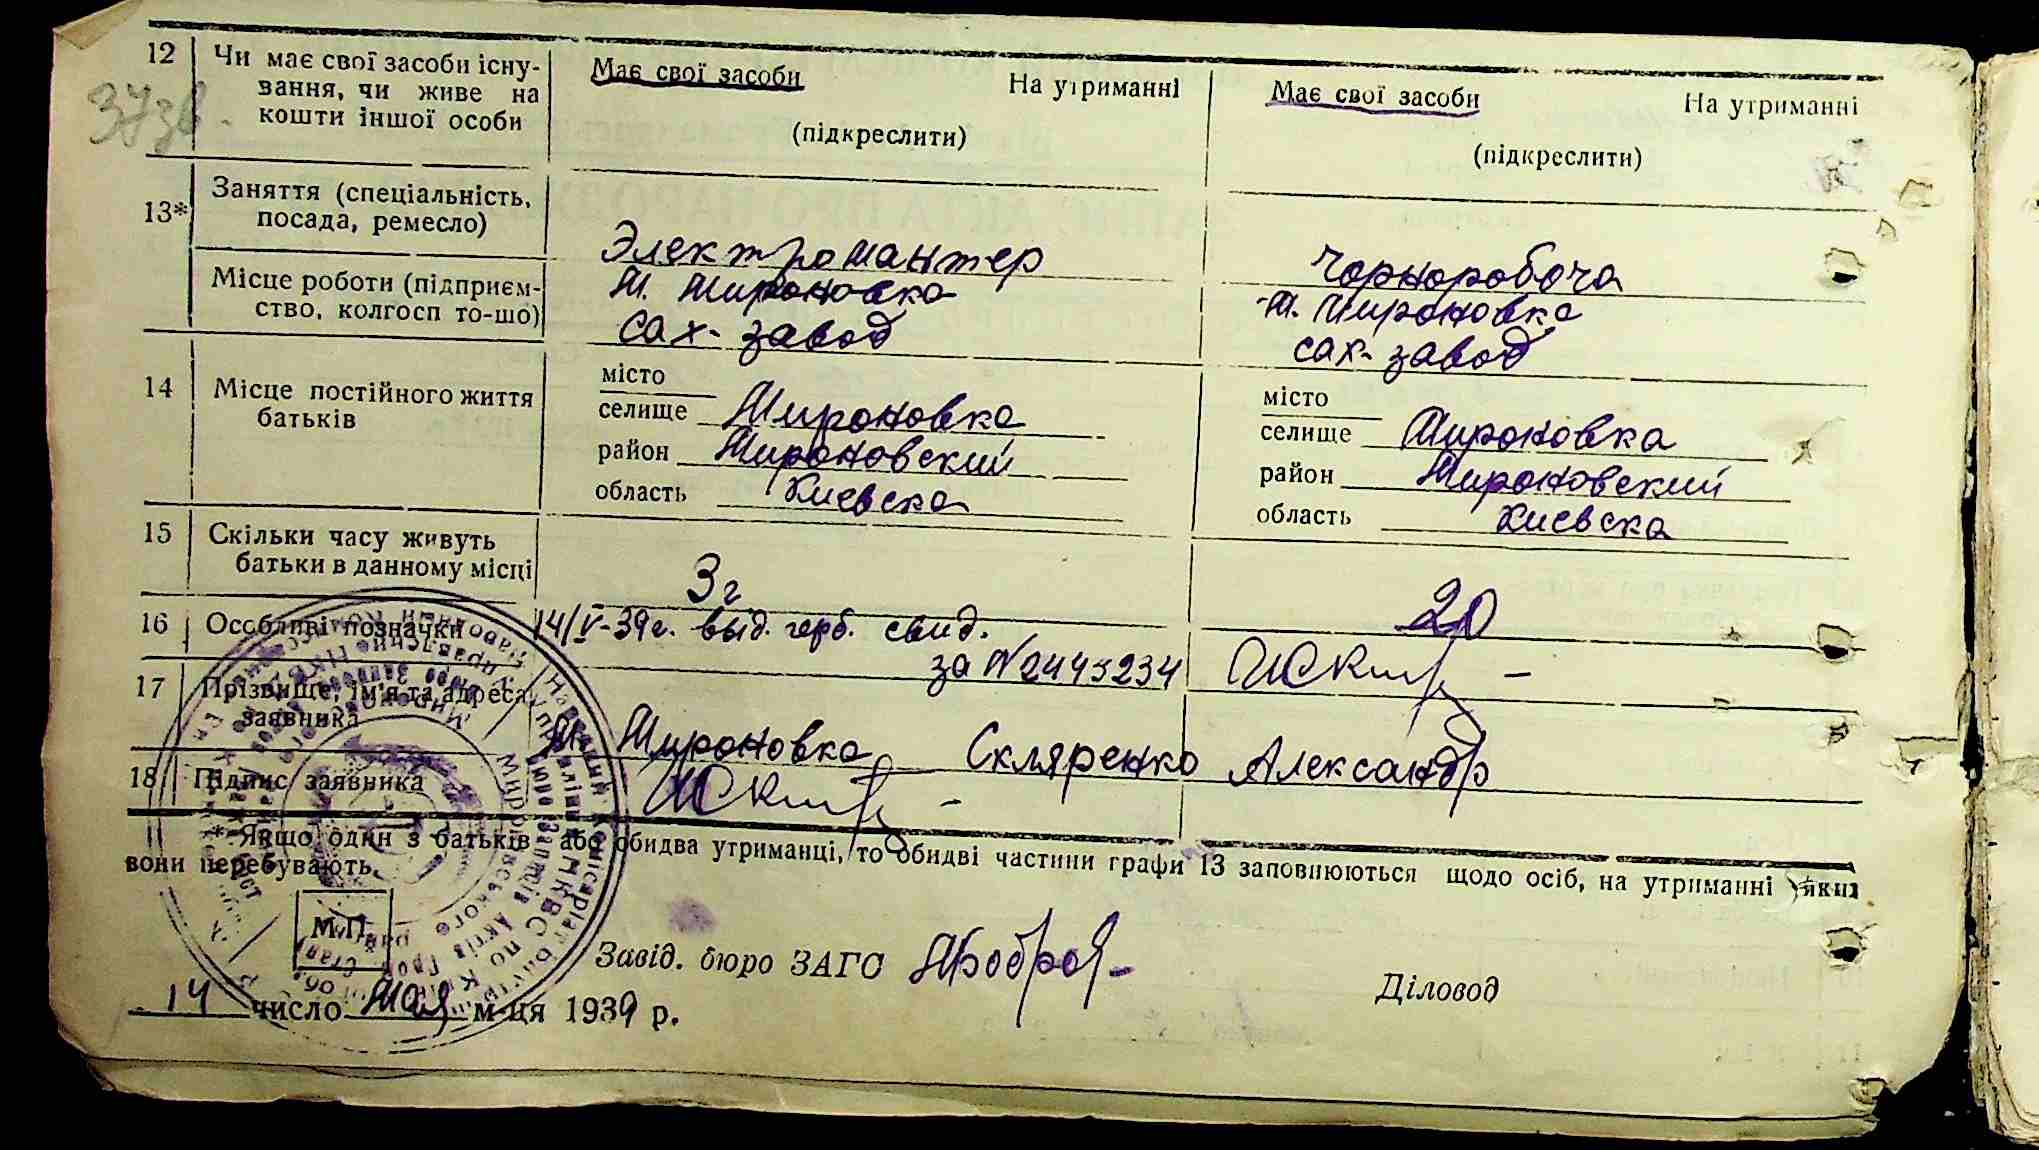 12 Чи має свої засоби існу- Має свої засоби На утриманні Має свої засоби На утриманні
вання, чи живе на
кошти іншої особи (підкреслити) (підкреслити)
37зв.
13* Заняття (спеціальність,
посада, ремесло) Электромантер Чорноробоча
Місце роботи (підприєм- М. Мироновка М. Мироновка
ство, колгосп то-що) сах-завод сах-завод
14 Місце постійного життя
батьків
місто місто
селище Мироновка селище Мироновка
район Мироновский район Мироновский
область Киевска область Киевска
15 Скільки часу живуть
батьки в данному місці 3 г 20
16 Особливі позначки 14/V-39г. выд. герб. свид.
за №2443234
17 Прізвище, ім'я та адреса
заявника М. Мироновка Скляренко Александр
18 Підпис заявника
* Якщо один з батьків або обидва утриманці, то обидві частини графи 13 заповнюються щодо осіб, на утриманні яких
вони перебувають.
М.П.
Завід. бюро ЗАГС Діловод
14 число Мая м-ця 1939 р.